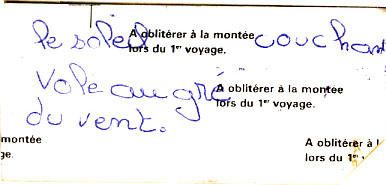 le soleil A oblitérer à la montée couchant
lors du 1er voyage.
vole au gré A oblitérer à la montée
lors du 1er voyage.
du vent.
montée A oblitérer à l
ge. lors du 1er